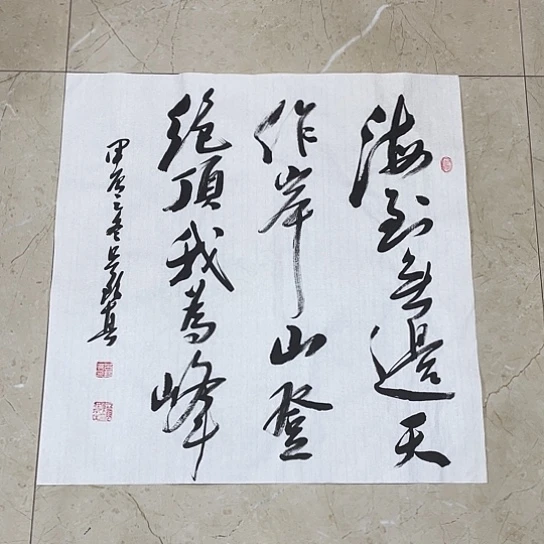 海到無邊天
作岸山登
絕頂我為峰
甲辰之冬
真